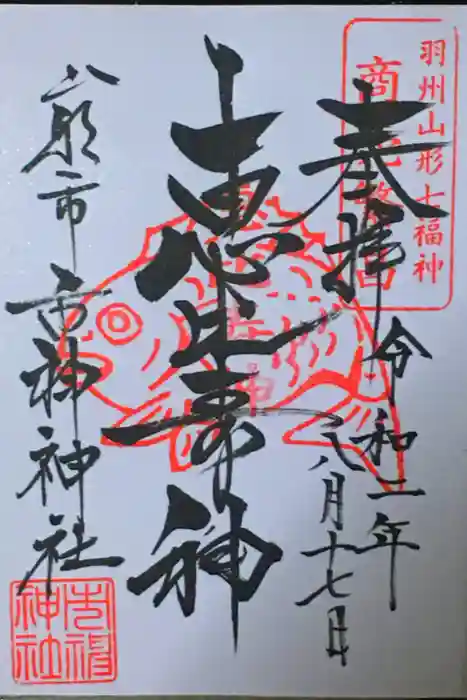 羽州山形七福神
商売繁昌
奉拝
令和二年
八月十七日
恵比寿神
山形市
市神神社
市神
神社